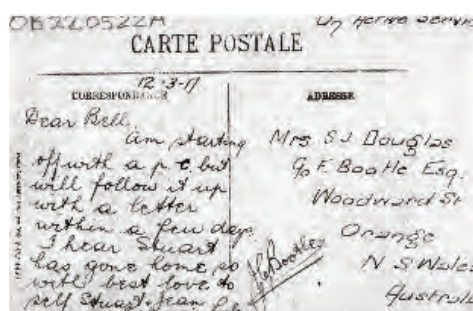 OB220522A
On Active Service
CARTE POSTALE
12-3-17
CORRESPONDANCE
ADRESSE
Dear Bell,
am starting
off with a p.c. but
will follow it up
with a letter
within a few days
I hear Stuart
has gone home so
with best love to
self Stuart & Jean
Mrs S.J. Douglas
c/o F. Bootle Esq.
Woodward St
Orange
N.S Wales
Australia
Bootle